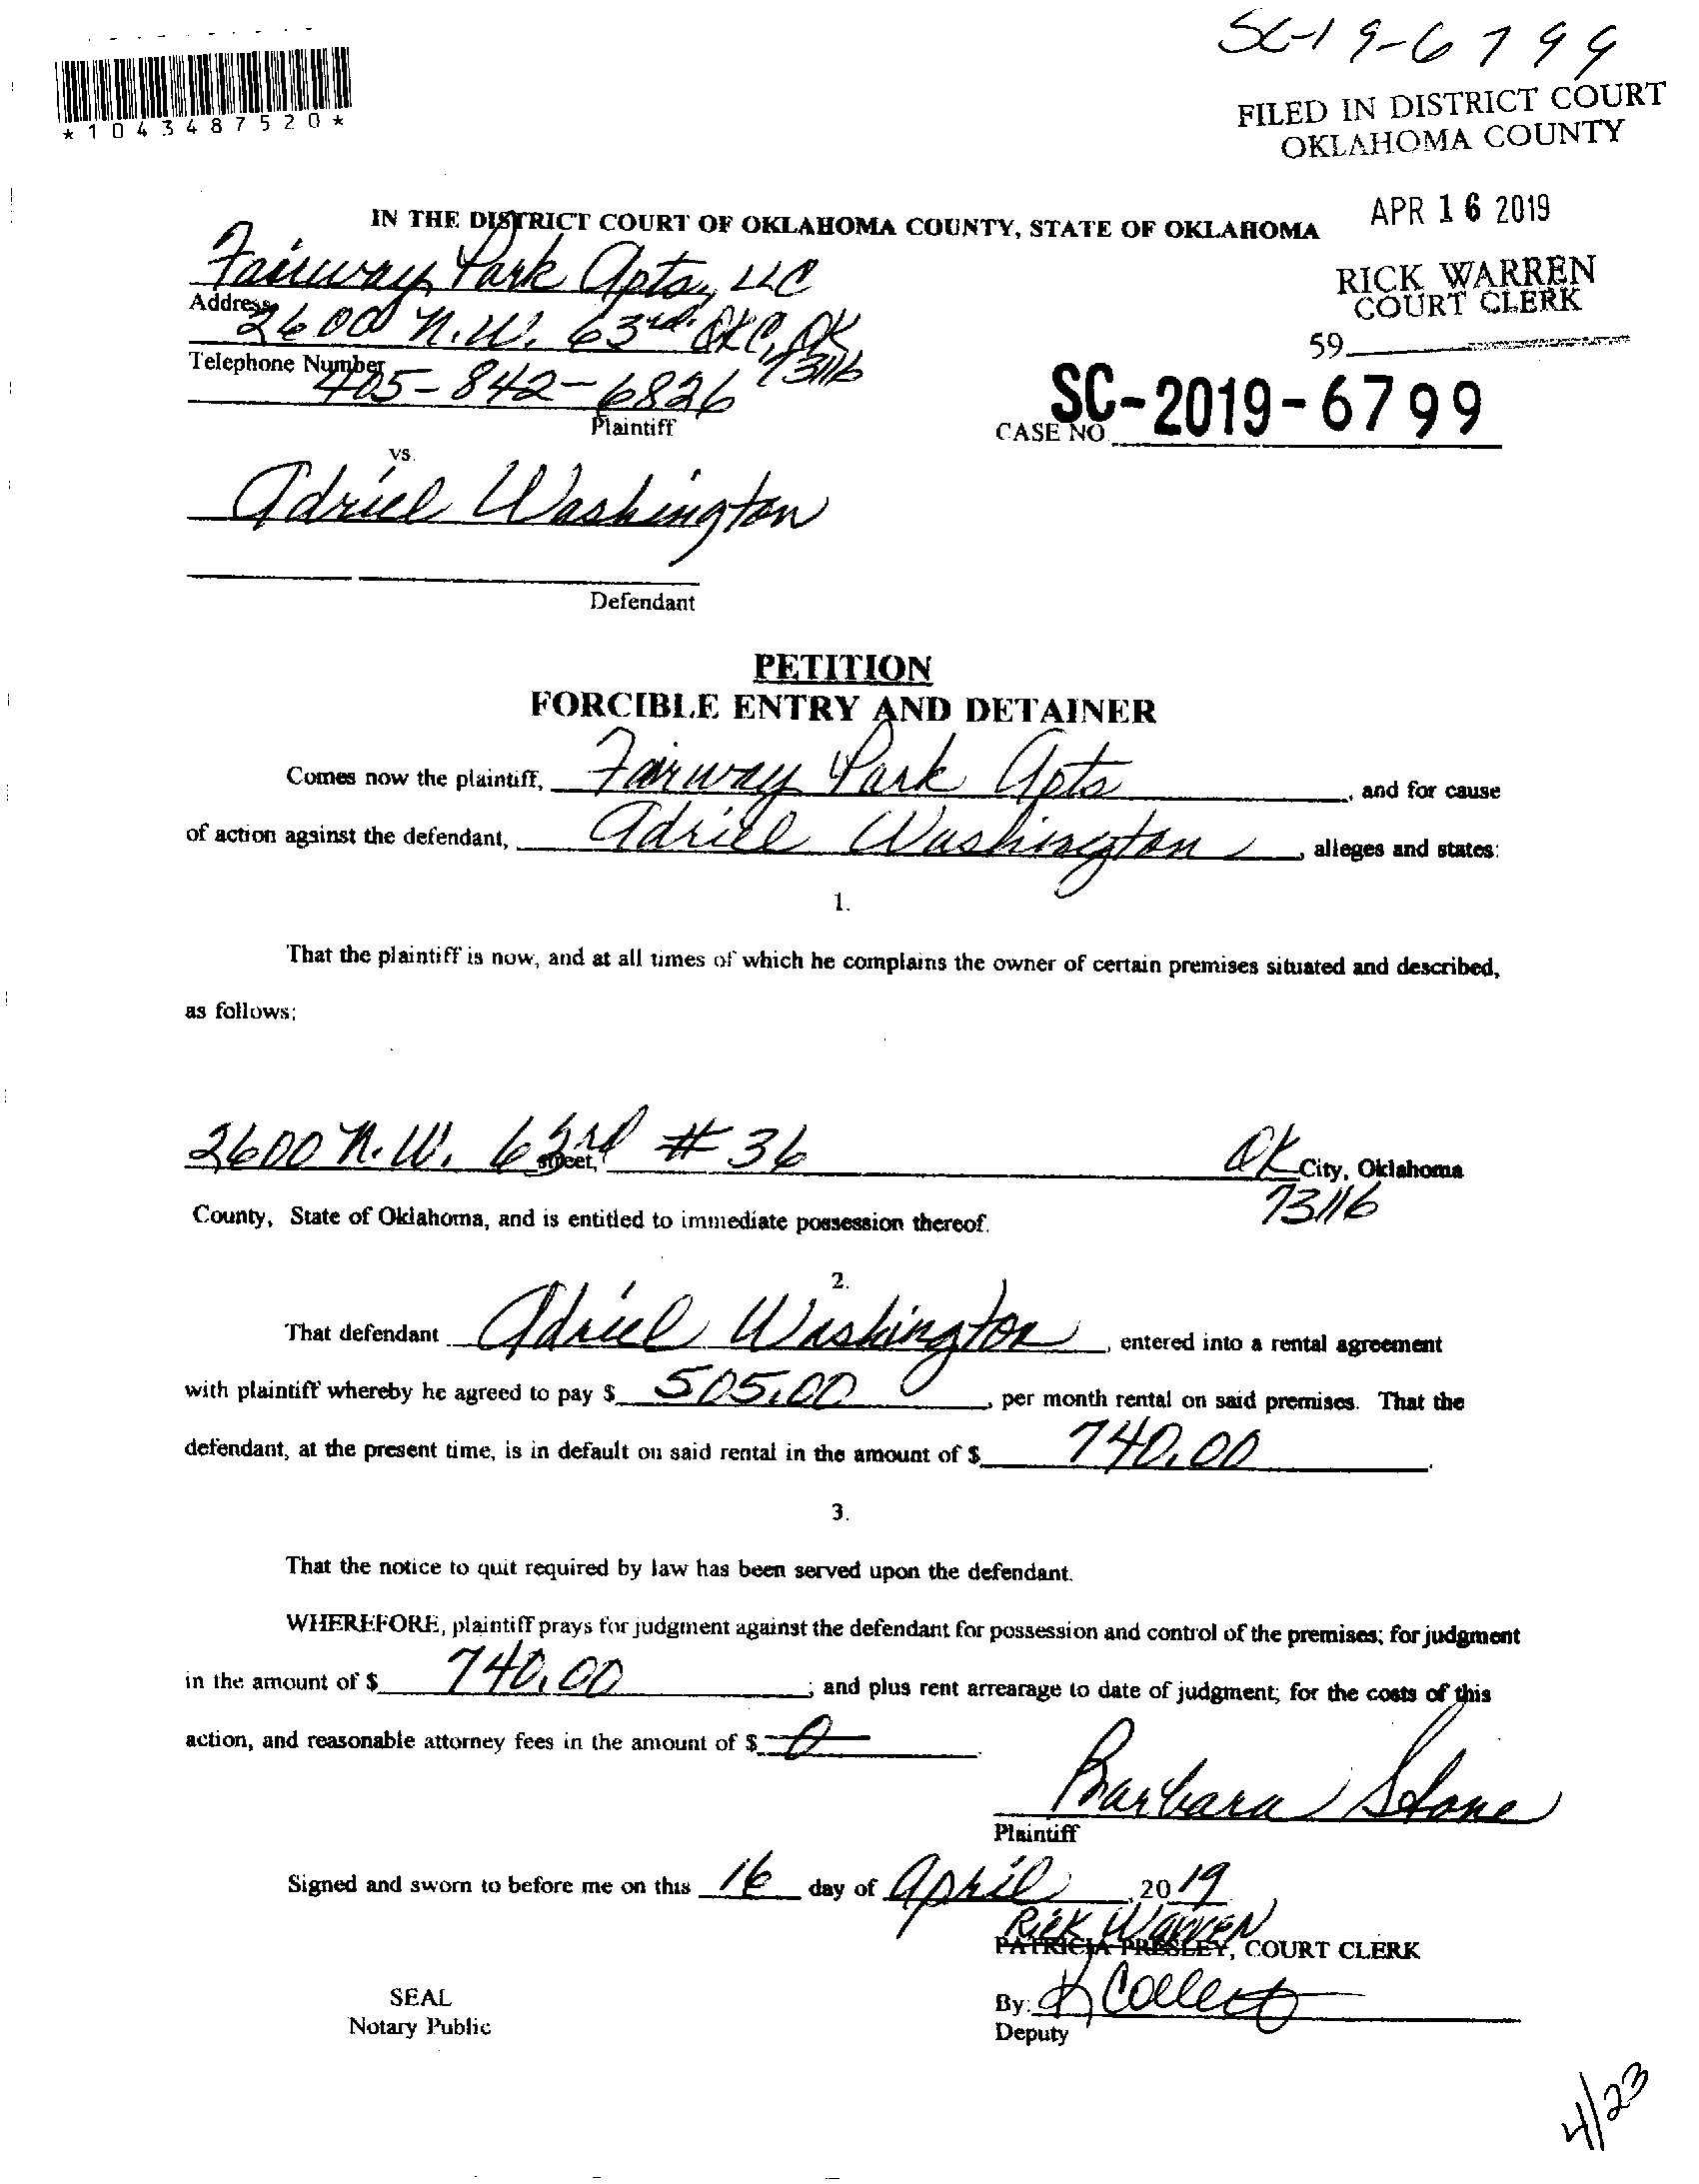 SC-19-6799
*1043487520*
FILED IN DISTRICT COURT
OKLAHOMA COUNTY
APR 16 2019
RICK WARREN
COURT CLERK
59
IN THE DISTRICT COURT OF OKLAHOMA COUNTY, STATE OF OKLAHOMA
Fairway Park Apts, LLC
Address
2600 N.W. 63rd. OKC, OK
73116
Telephone Number
405-842-6826
Plaintiff
SC-2019-6799
CASE NO.
vs.
Adriel Washington
Defendant
PETITION
FORCIBLE ENTRY AND DETAINER
Comes now the plaintiff, Fairway Park Apts, and for cause
of action against the defendant, Adriel Washington, alleges and states:
1.
That the plaintiff is now, and at all times of which he complains the owner of certain premises situated and described,
as follows:
2600 N.W. 63rd # 36 OK City, Oklahoma
street,
73116
County, State of Oklahoma, and is entitled to immediate possession thereof.
2.
That defendant Adriel Washington, entered into a rental agreement
with plaintiff whereby he agreed to pay $ 505.00, per month rental on said premises. That the
defendant, at the present time, is in default on said rental in the amount of $ 740.00.
3.
That the notice to quit required by law has been served upon the defendant.
WHEREFORE, plaintiff prays for judgment against the defendant for possession and control of the premises; for judgment
in the amount of $ 740.00; and plus rent arrearage to date of judgment; for the costs of this
action, and reasonable attorney fees in the amount of $ 0.
Barbara Stone
Plaintiff
Signed and sworn to before me on this 16 day of April, 2019
Rick Warren
PATRICIA PRESLEY, COURT CLERK
SEAL
Notary Public
By: K Collett
Deputy
4/23